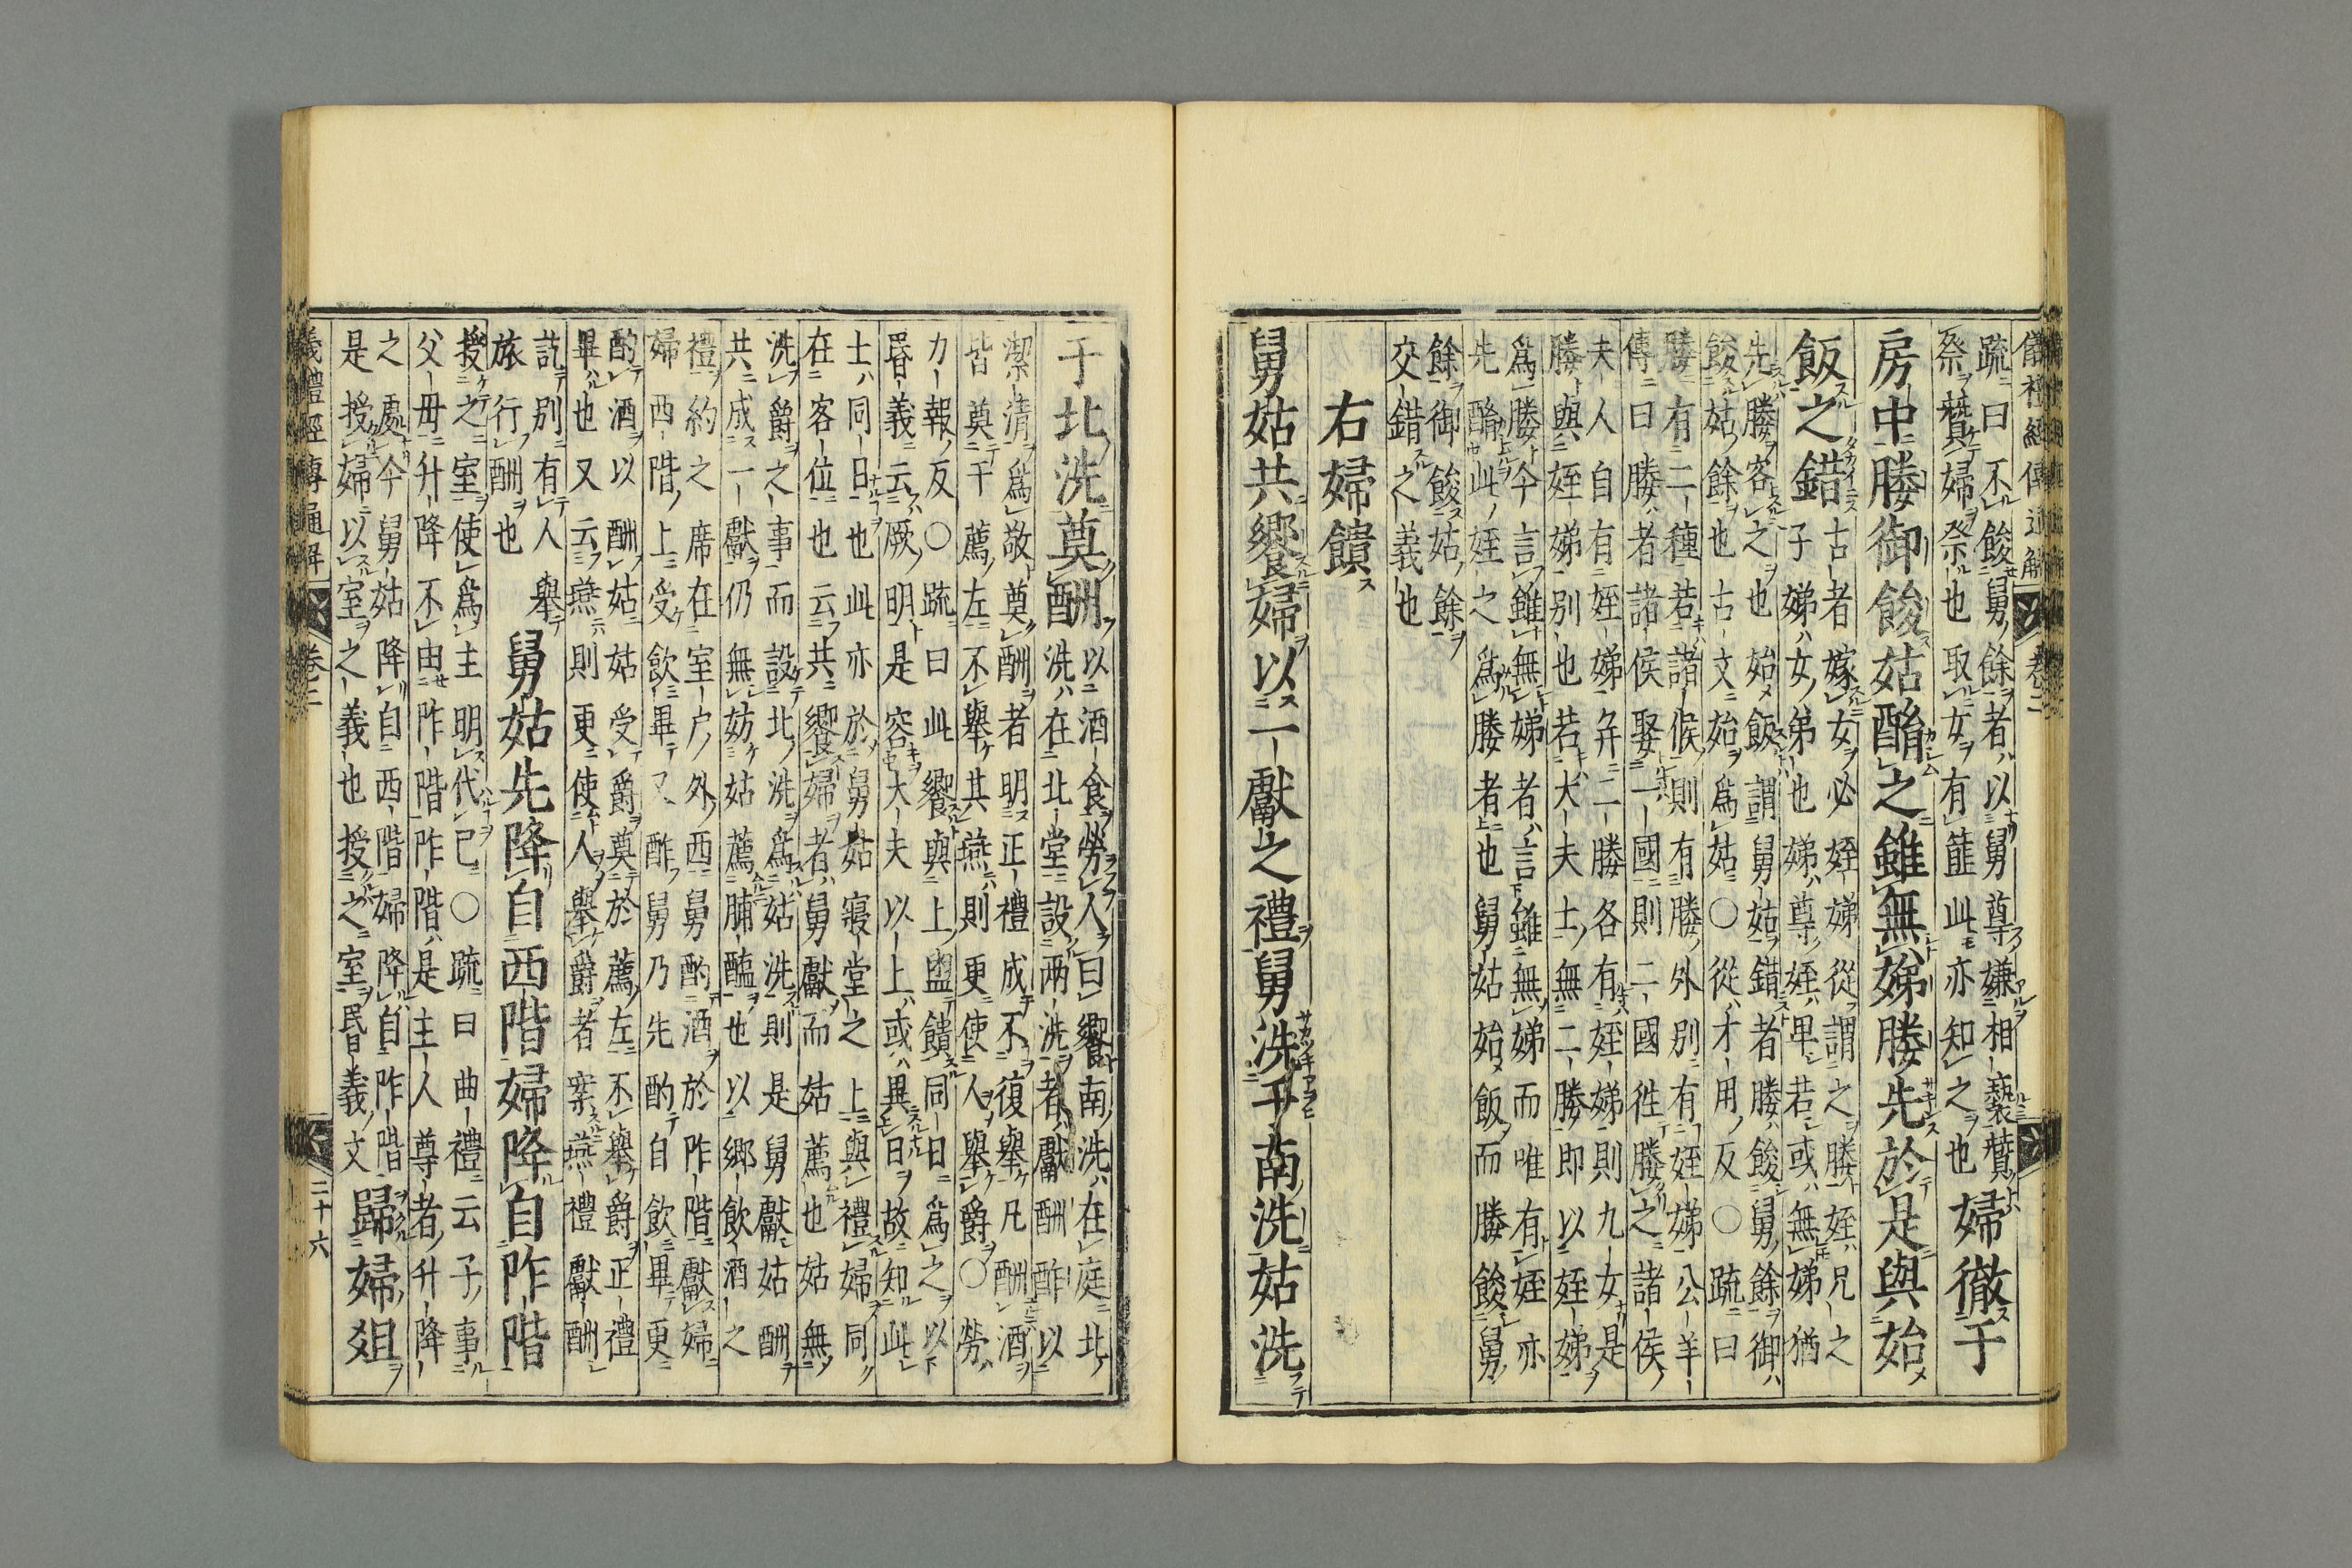 儀禮經傳通解 卷二
疏曰不餕舅餘者以舅尊嫌相褻贊
祭贊婦祭也取女有篚此亦知之也
婦徹于
房中媵御餕姑酳之雖無娣媵先於是與始
飯之錯
古者嫁女必姪娣從謂之媵姪兄之
子娣女弟也娣尊姪卑若或無娣猶
先媵客之也始飯謂舅姑錯者媵餕舅餘御
餕姑餘也古文始爲姑○從才用反○疏曰
媵有二種若諸侯則有媵外別有姪娣公羊
傳曰媵者諸侯娶一國則二國徃媵之諸侯
夫人自有姪娣并二媵各有姪娣則九女是
媵與姪娣別也若大夫士無二媵即以姪娣
爲媵今言雖無娣者言雖無娣而唯有姪亦
先酳此姪之爲媵者也舅姑始飯而媵餕舅
餘御餕姑餘
交錯之義也
右婦饋
舅姑共饗婦以一獻之禮舅洗于南洗姑洗
于北洗奠酬
以酒食勞人曰饗南洗在庭北
洗在北堂設兩洗者獻酬酢以
潔清爲敬奠酬者明正禮成不復舉凡酬酒
皆奠于薦左不舉其燕則更使人舉爵○勞
力報反○疏曰此饗與上盥饋同日爲之以
昏義云厥明是容大夫以上或異日故知此
士同日也此亦於舅姑寢堂之上與禮婦同
在客位也云共饗婦者舅獻而姑薦也姑無
洗爵之事而設北洗爲姑洗則是舅獻姑酬
共成一獻仍無妨姑薦脯醢也以鄉飲酒之
禮約之席在室户外西舅酌酒於阼階獻婦
婦西階上受飲畢又酢舅乃先酌自飲畢更
酌酒以酬姑姑受爵奠於薦左不舉爵正禮
畢也又云燕則更使人舉爵者案燕禮獻酬
訖別有人舉
旅行酬也
舅姑先降自西階婦降自阼階
授之室使爲主明代己○疏曰曲禮云子事
父母升降不由阼階阼階是主人尊者升降
之處今舅姑降自西階婦降自阼階
是授婦以室之義也授之室昏義文
歸婦俎
儀禮經傳通解 卷二 二十六